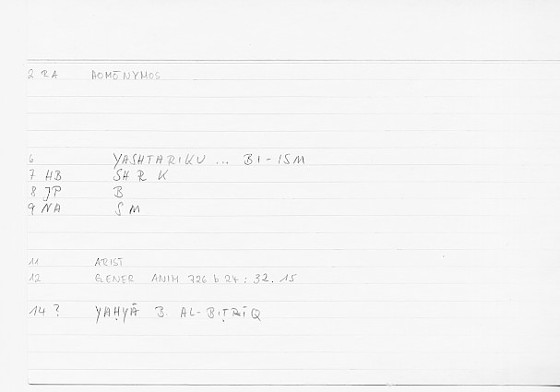 2 RA HOMŌNYMOS
6 YASHTARIKU ... BI-ISM
7 HB SH R K
8 JP B
9 NA S M
11 ARIST
12 GENER ANIM 726 b 24 : 32.15
14 ? YAḤYĀ B. AL-BIṬRĪQ